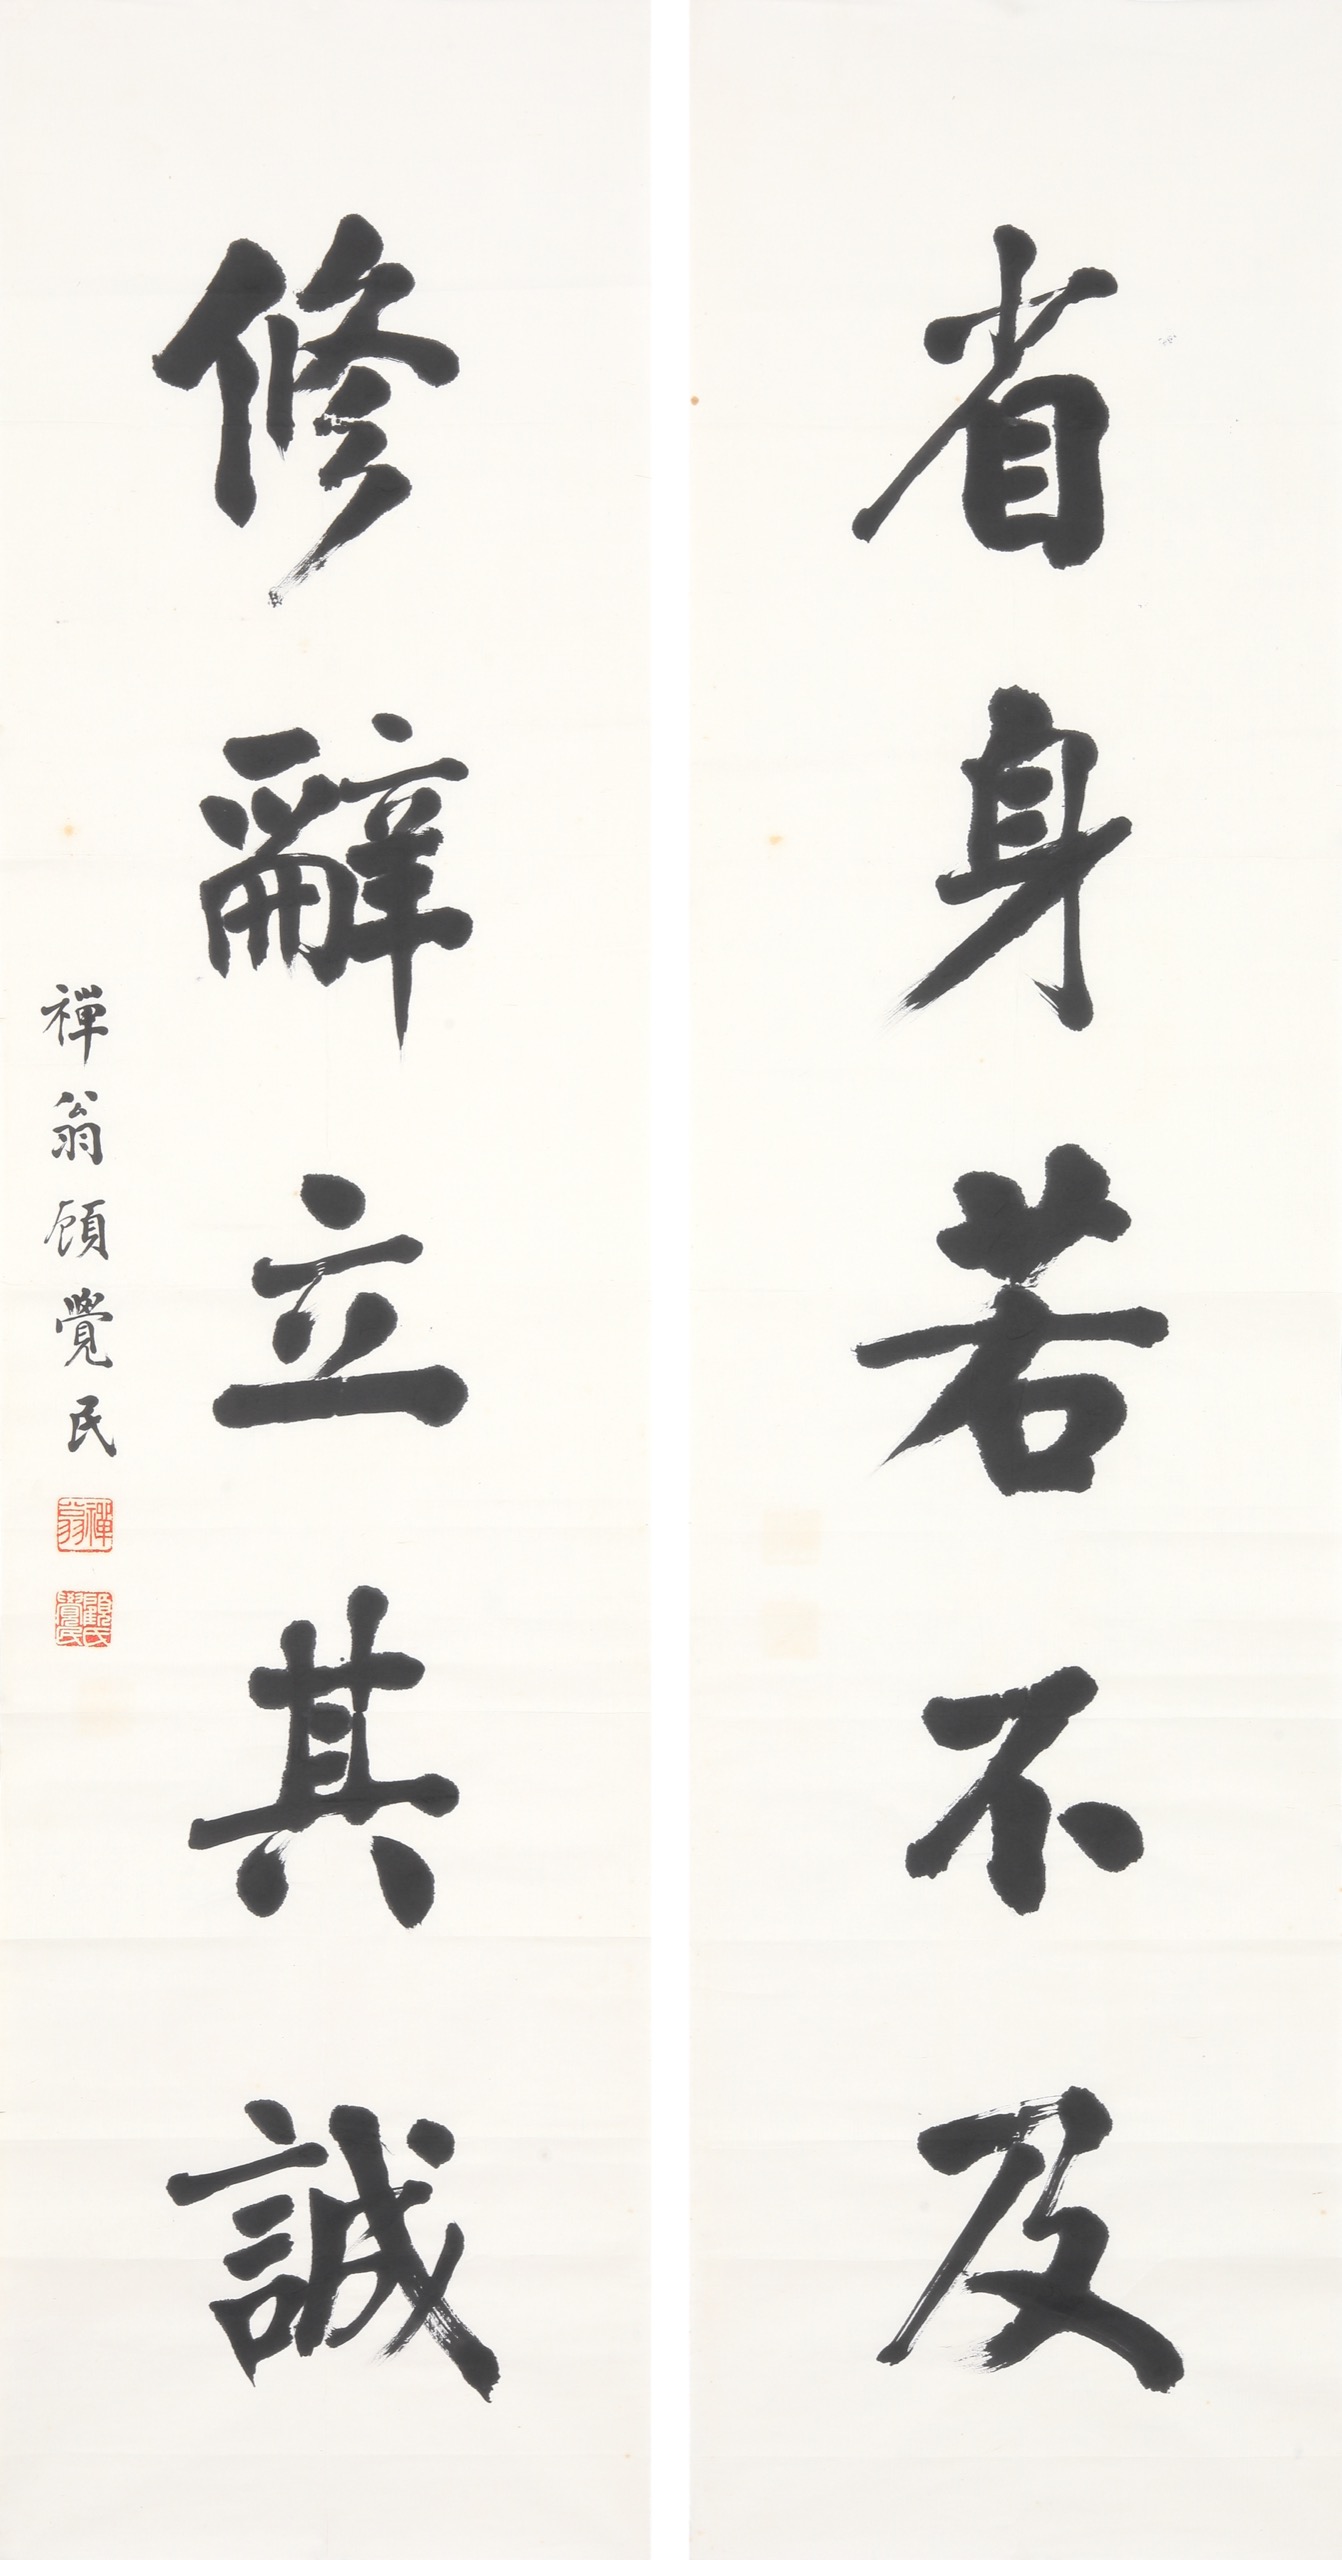 省身若不及
修辭立其誠
禪翁顾覺民
禪翁
顧覺民